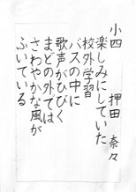 小四 押田 奈々
楽しみにしていた
校外学習
バスの中に
歌声がひびく
まどの外では
さわやかな風が
ふいている